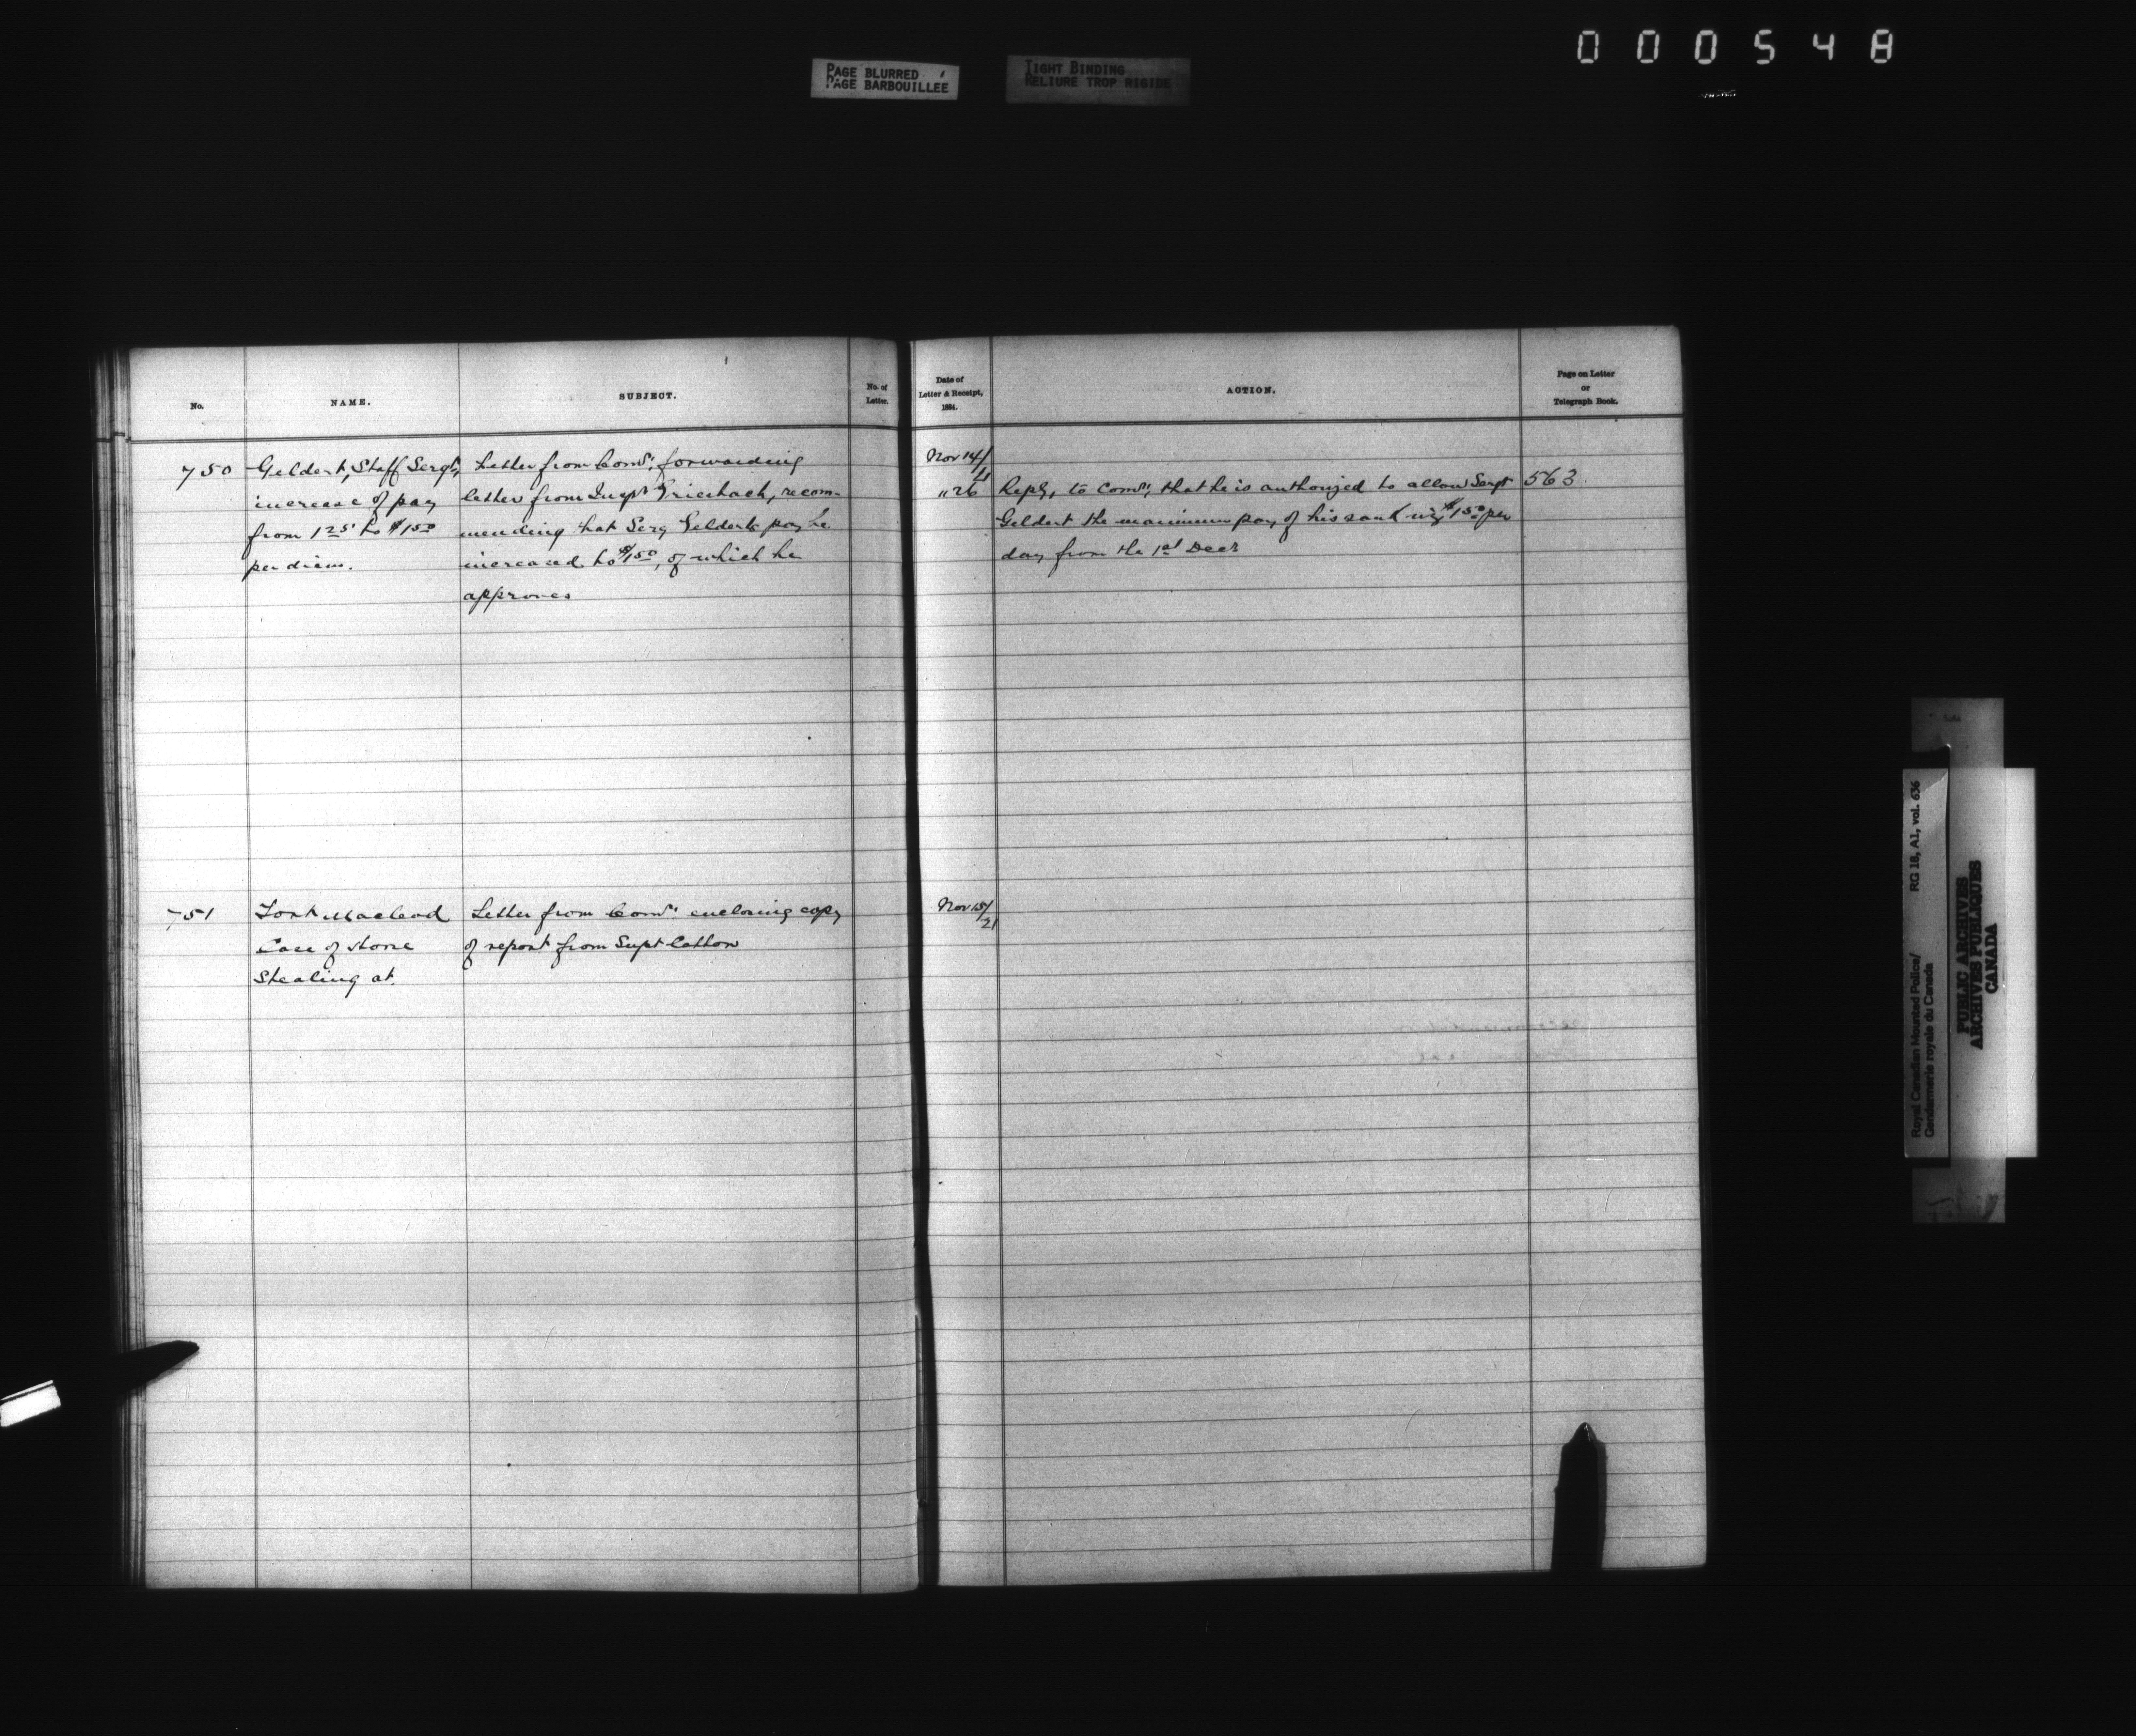 000548
PAGE BLURRED
PAGE BARBOUILLÉE
TIGHT BINDING
RELIURE TROP RIGIDE
No.
NAME.
SUBJECT.
No. of
Letter.
Date of
Letter & Receipt,
1884.
ACTION.
Page on Letter
or
Telegraph Book.
750
Geldert, Staff Sergt,
increase of pay
from 1 25 to $1 50
per diem.
Letter from Comr. forwarding
letter from Inspr Griesbach, recom-
mending that Serg Gelderts pay be
increased to $1 50, of which he
approves
Nov 14/
21
" 26
Reply, to Comr, that he is authorized to allow Sergt
Geldert the maximum pay of his rank viz $1 50 per
day from the 1st Decr
563
751
Fort Macleod
Case of Horse
Stealing at.
Letter from Comr. enclosing copy
of report from Supt Cotton
Nov 15/
21
Royal Canadian Mounted Police/
Gendarmerie royale du Canada
RG 18, A1, vol. 636
PUBLIC ARCHIVES
ARCHIVES PUBLIQUES
CANADA